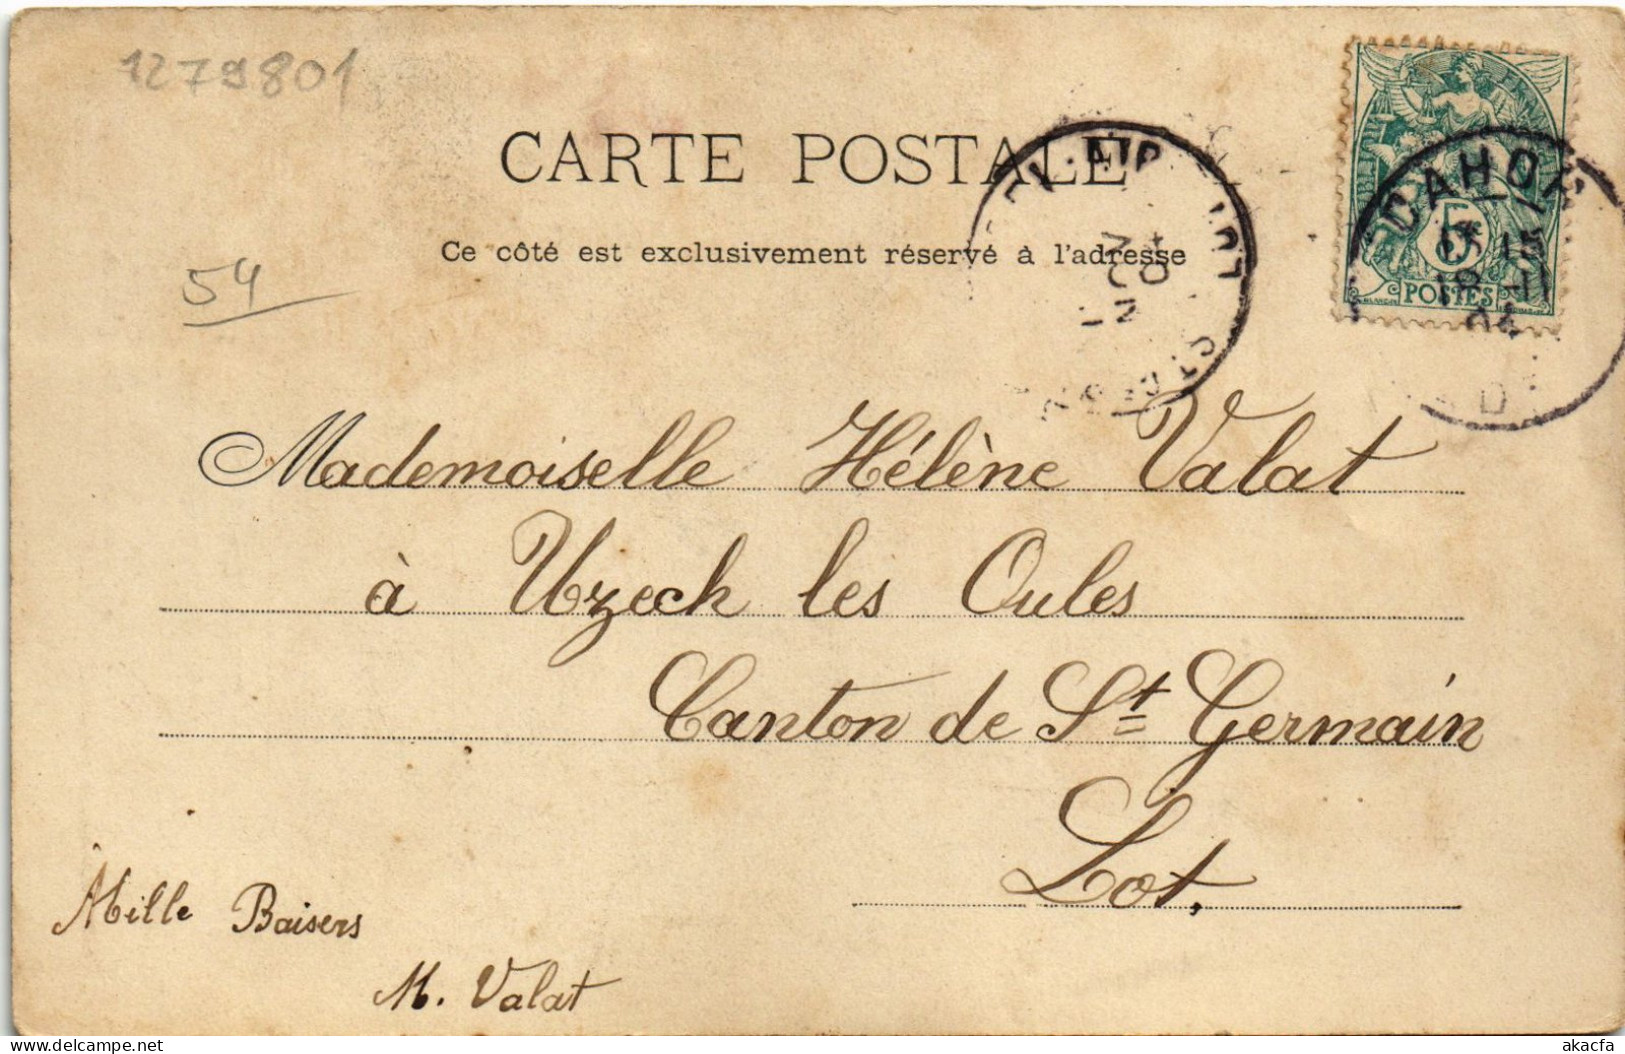 1279801
CARTE POSTALE
Ce côté est exclusivement réservé à l'adresse
54
CAHORS
5
POSTES
04
Mademoiselle Hélène Valat
à Uzech les Oules
Canton de St Germain
Lot.
Mille Baisers
M. Valat
akacfa